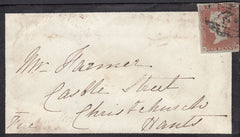 Mr Farmer
Castle Street
Christchurch
Hants